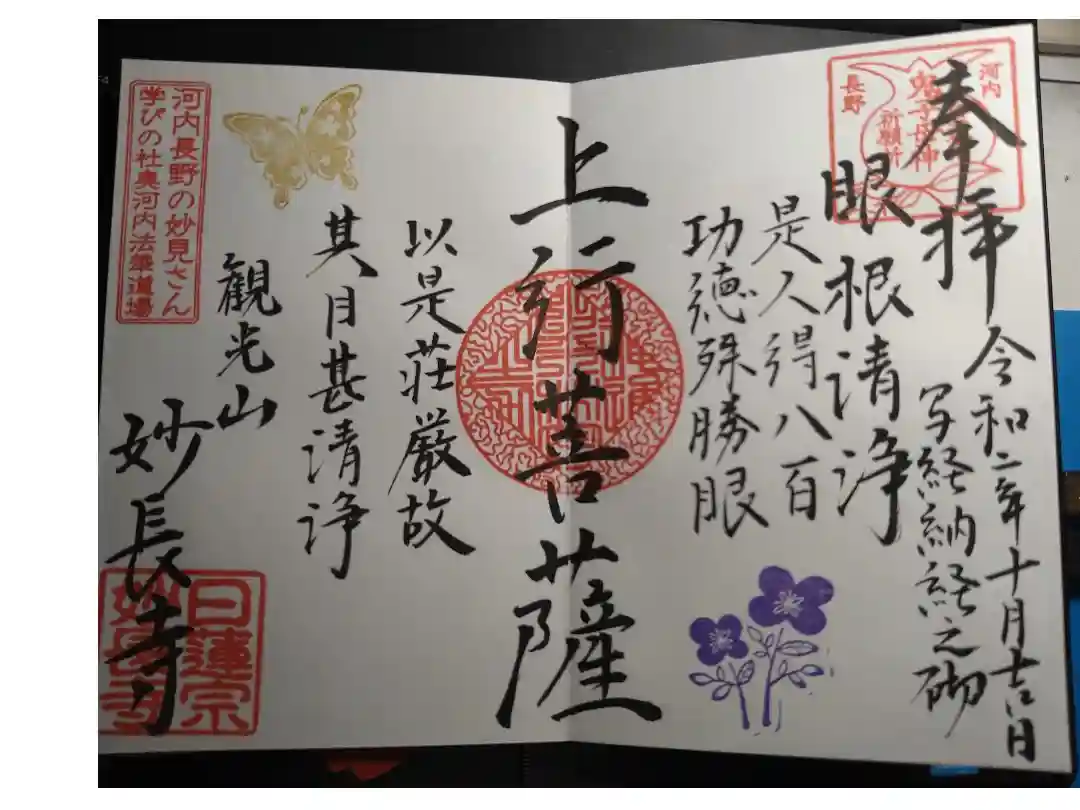 奉拝
令和二年十月吉日
写経納経之砌
眼根清浄
是人得八百
功徳殊勝眼
上行菩薩
以是荘厳故
其目甚清浄
観光山
妙長寺
河内
鬼子母神
祈願所
長野
河内長野の妙見さん
学びの社奥河内法華道場
日蓮宗
妙長寺